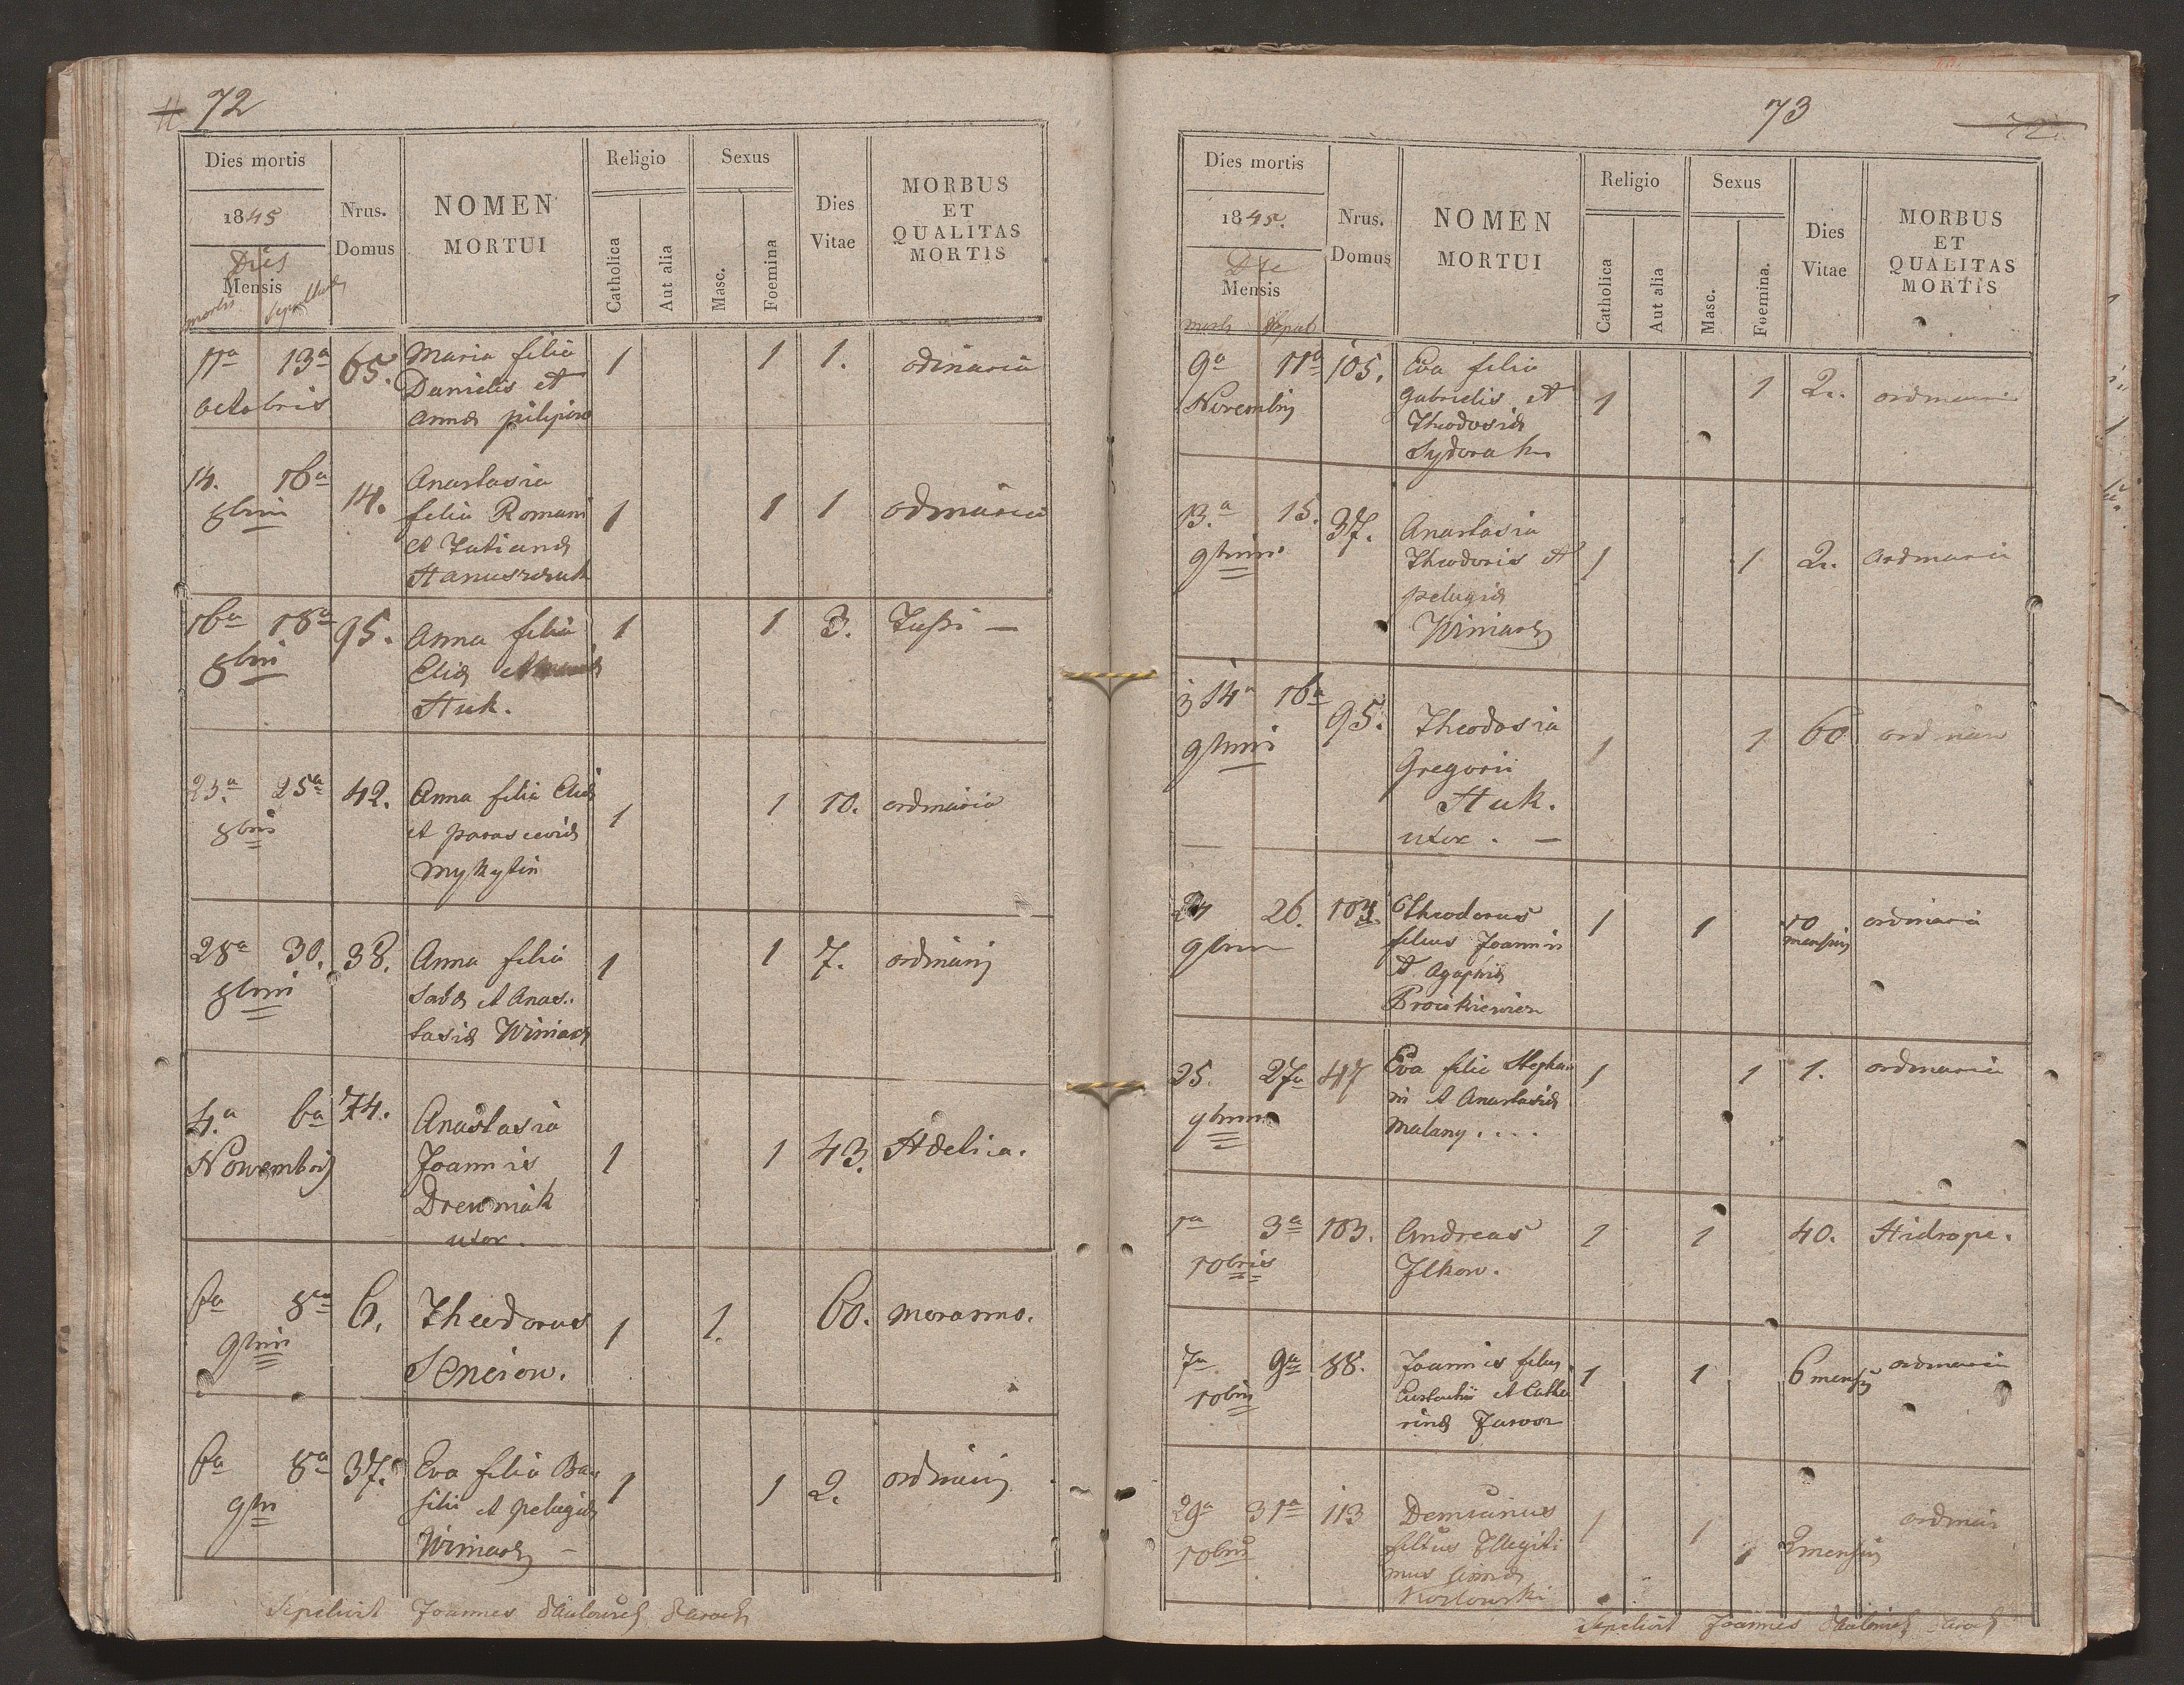 72
Dies mortis
1845
Dies
Mensis
mortis
Nrus.
Domus
NOMEN
MORTUI
Religio
Catholica
Aut alia
Sexus
Masc.
Foemina
Dies
Vitae
MORBUS
ET
QUALITAS
MORTIS
11a 13a 65. Maria filia 1 1 1. odinaria
Octobris Danielis et
Annæ
14. 16a 14. Anastasia
8bris filia Romani 1 1 1 odinaria
et Tatiannæ
16a 18a 95. Anna filia 1 1 3. Tussi —
8bri Eliæ
Huk.
23.a 25a 42. Anna filia Eliæ 1 1 10. ordinaria
8bris et Parasceviæ
Mykytin
28a 30. 38. Anna filia 1 1 7. ordinari
8bris Sabæ et Anas-
tasiæ Winiarz
4.a 6a 74. Anastasia
Nowembris Joannis 1 1 43. Hdetica.
Drewniak
uxor.
6a 8a 6. Theodorus 1 1. 60. marasmo.
9bris
6a 8a 37. Eva filia Ba- 1 1 2. ordinari
9br silii et Pelagiæ
Winiarz —
Sepelivit Joannes
73
Dies mortis
1845.
Die
Mensis
mortis Sepul
Nrus.
Domus
NOMEN
MORTUI
Religio
Catholica
Aut alia
Sexus
Masc.
Foemina.
Dies
Vitae
MORBUS
ET
QUALITAS
MORTIS
9a 11a 105. Eva filia 1 1 2. ordinari
Novembris Gabrielis et
Theodosiæ
Sydorak
13.a 15. 37. Anastasia
9bris Theodoris et 1 1 2. ordinaria
Pelagiæ
Winiarz
14a 16a 95. Theodosia 1 1 60 ordinar
9bris Gregorii
Huk.
uxor. —
26. 104. Theodorus 1 1 10 ordinaria
filius Joannis mensis
et Agaphiæ
25. 27a 47 Eva filia Stepha- 1 1 1. ordinaria
9bris ni et Anastasiæ
Malany....
1a 3a 103. Andreas 1 1 40. Hidrope.
10bris Ilkow.
7a 9a 88. Joannes filius 1 1 6 mensis ordinaria
10bris Eustachii et Catha-
rinæ Jarosz
29a 31a 113 Demianus 1 1 ordinar
10bris filius Illegiti- 1 3 mensis
mus Annæ
Kozlowski
Sepelivit Joannes